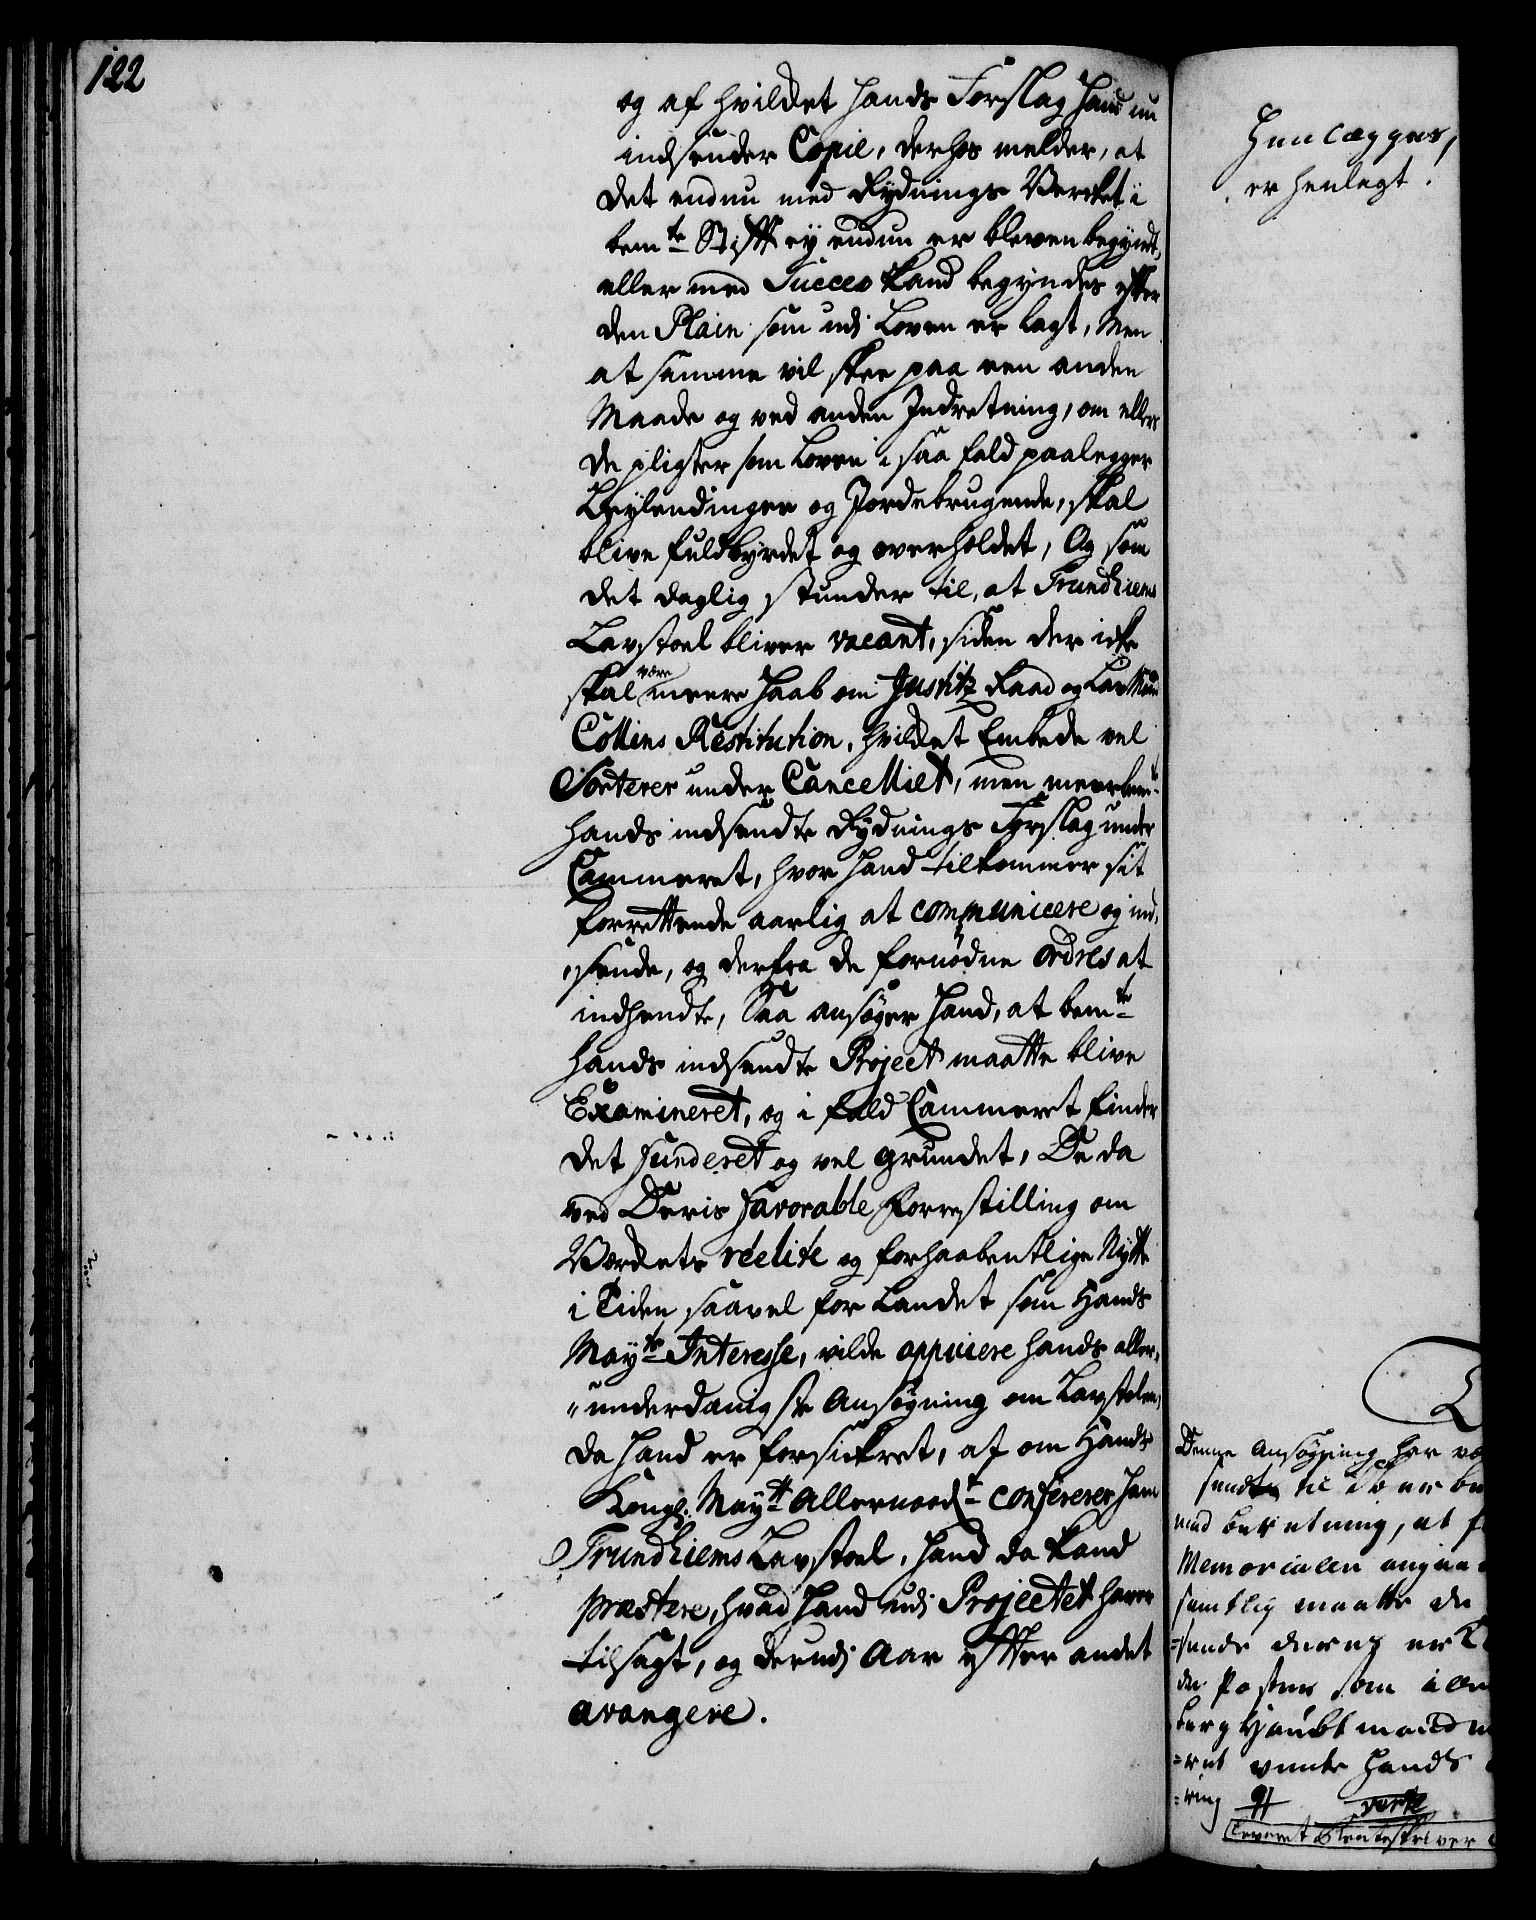 122
og af hvilket hands Forslag hand nu
indsender Copie, derhos melder, at
det endnu med Rydnings Verket i
bemte Stifft ey endnu er bleven begyndt,
eller med Succes kand begyndes efter
den Plain som udj Loven er lagt, Men
at samme vil skee paa een anden
Maade og ved anden Indretning, om ellers
de pligter som Loven i saa fald paalegger
Leylendinger og Jordebrugende, skal
blive fuldbyrdet og overholdet, Og som
det daglig stunder til, at Trundhiems
Lavstoel bliver vacant, siden der icke
skal være meere Haab om Justitz Raad og LavMand
Collins Restitution, hvilket Embede vel
Sorterer under Cancelliet, men meerbemte
hands indsendte Rydnings Forslag under
Cammeret, hvor hand tilkommer sit
forrettende aarlig at communicere og ind,
sende, og derfra de fornødne ordres at
indhendte, Saa ansøger hand, at bemte
hands indsendte Project maatte blive
Examineret, og i fald Cammeret finder
det funderet og vel grundet, De da
ved Deris favorable forrestilling om
Verkets reelite og forhaabentlige Nytte
i Tiden saavel for Landet som Hands
Mayts Interesse, vilde appuiere hands aller,
underdanigste Ansøgning om Lavstolen,
da hand er forsickret, at om Hands
Kongl. Maytt Allernaadt confererer ham
Trundhiems Lavstoel, hand da kand
præstere, hvad hand udj Projectet haver
tilsagt, og derudj Aar efter andet
avangere.
Hen lægges,
er henlagt.
Denne Ansøgning har væ
sendt til
med beretning, at f
Memorialen angaa
samtlig maatte de
=sende
de Poster som i
berg Haubtmand
=ret vente hands
=ring
verte